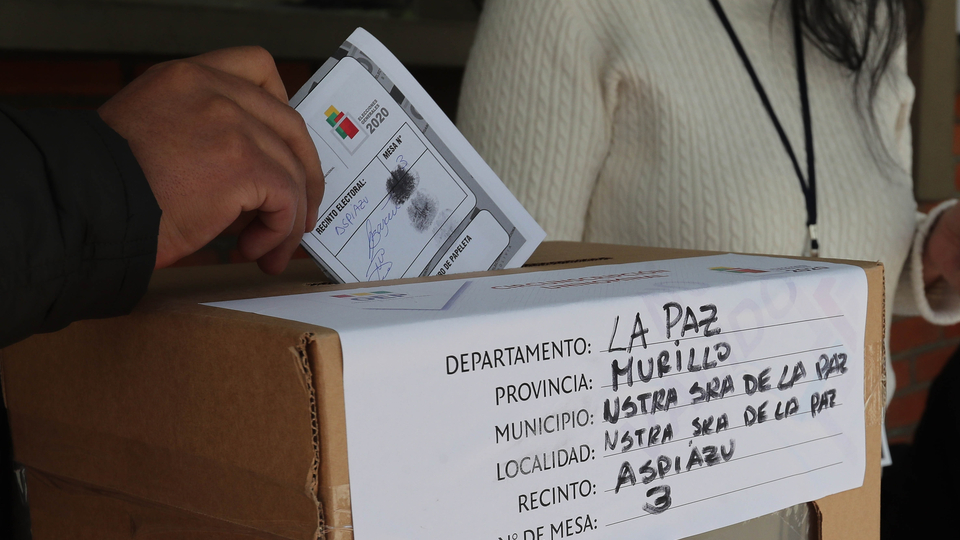 ELECCIONES
GENERALES
2020
MESA N°
3
RECINTO ELECTORAL:
ASPIAZU
RO DE PAPELETA
CIRCUNSCRIPCIÓN
2020
DEPARTAMENTO: LA PAZ
PROVINCIA: MURILLO
MUNICIPIO: NSTRA SRA DE LA PAZ
LOCALIDAD: NSTRA SRA DE LA PAZ
RECINTO: ASPIAZU
N° DE MESA: 3